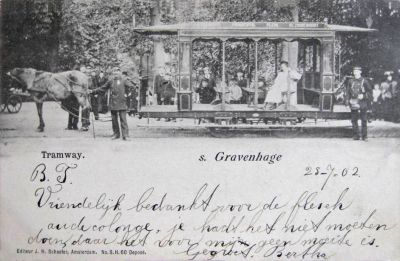 Tramway.
s. Gravenhage
28-7-02.
B. T.
Vriendelijk bedankt voor de flesch
audecolonge, je hadt het niet moeten
doen, daar het voor mijn geen moeite is.
Gegroet. Bertha
Editeur J. H. Schaefer, Amsterdam. No. S.H. 60 Deposé.